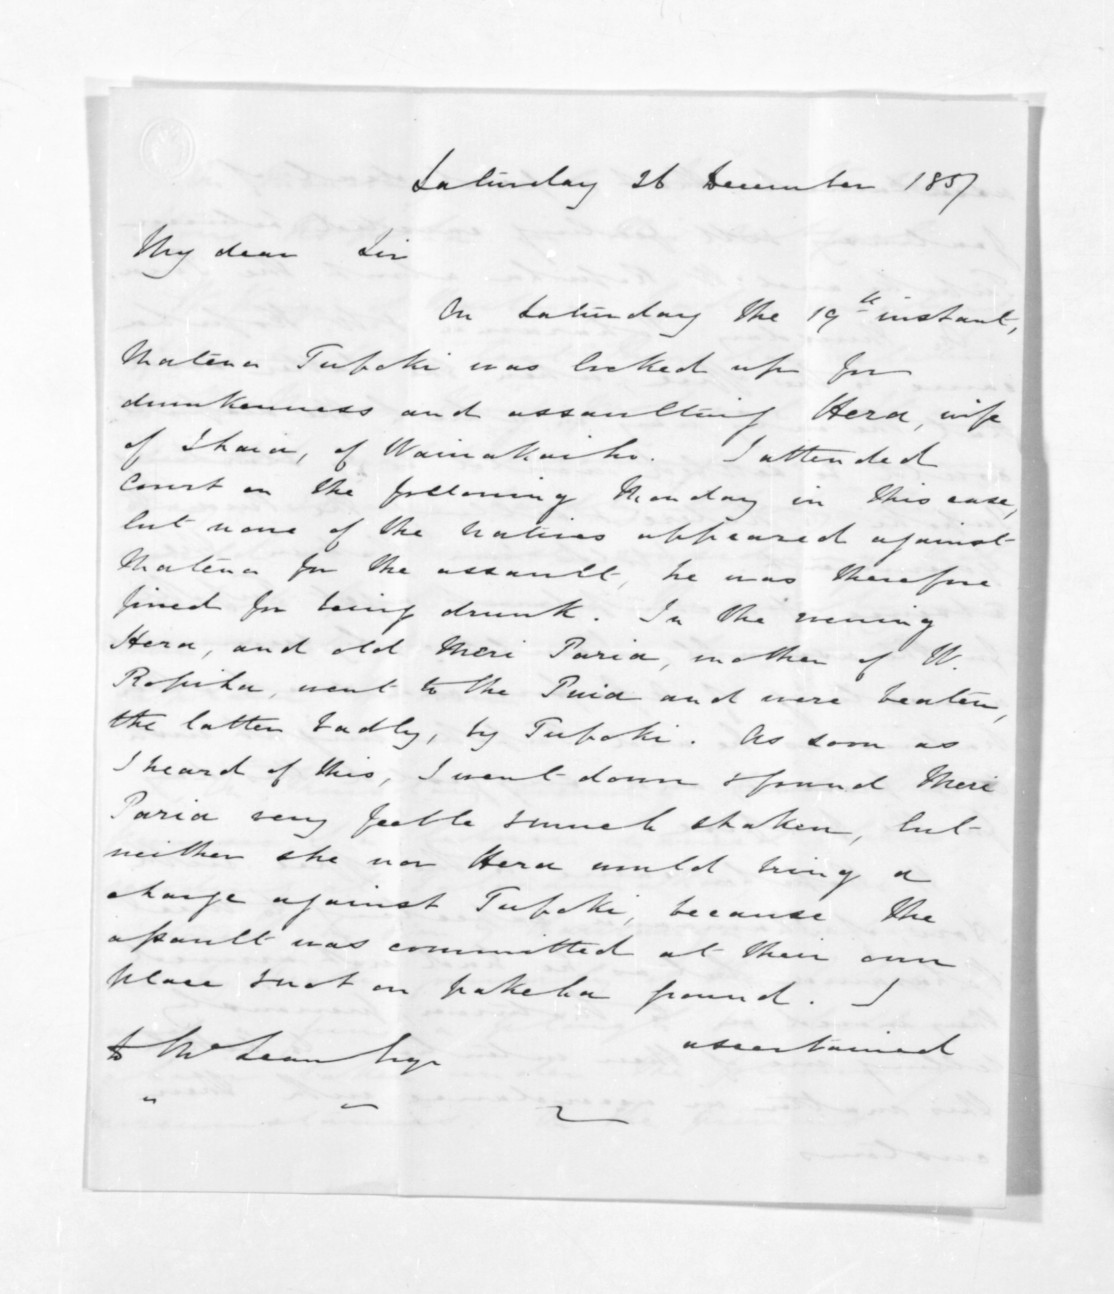 Saturday 26 December 1857
My dear Sir
On Saturday the 19th instant,
Matena Tupoki was locked up for
drunkenness and assaulting Hera, wife
of Ihaia, of Waiwakaiho. I attended
Court on the following Monday in this case,
but none of the natives appeared against
Matena for the assault, he was therefore
fined for being drunk. In the evening
Hera, and old Meri Paria, mother of W.
Ropiha, went to the Puia and were beaten,
the latter badly, by Tupoki. As soon as
I heard of this, I went down & found Meri
Paria very feeble & much shaken, but
neither she nor Hera would bring a
charge against Tupoki, because the
assault was committed at their own
place & not on pakeha ground. I
ascertained
D McLean Esqr
" " "